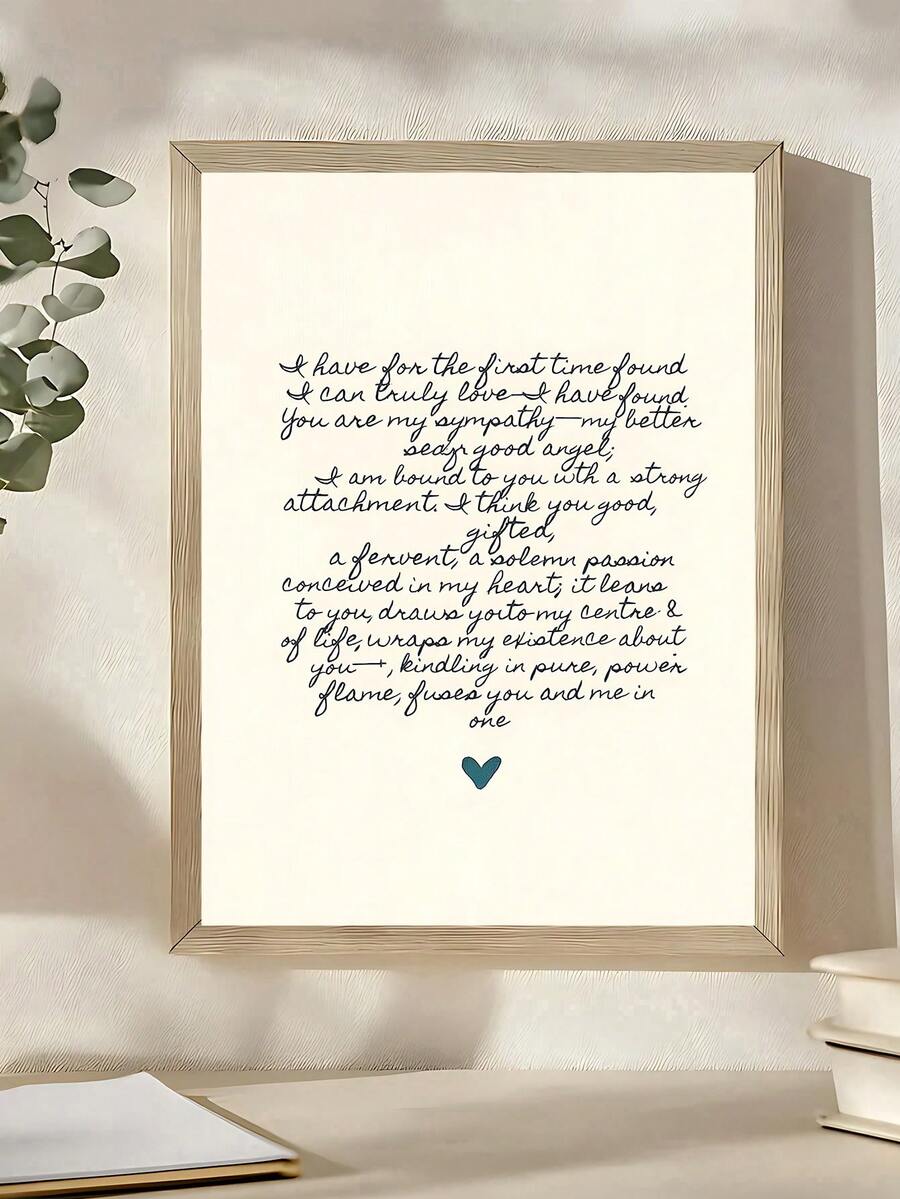 I have for the first time found
I can truly love—I have found.
You are my sympathy—my better
good angel;
I am bound to you wth a strong
attachment. I think you good,
gifted,
a fervent, a solemn passion
conceived in my heart; it leans
to you, draws yoto my centre &
of life, wraps my existence about
you—, kindling in pure, power
flame, fuses you and me in
one